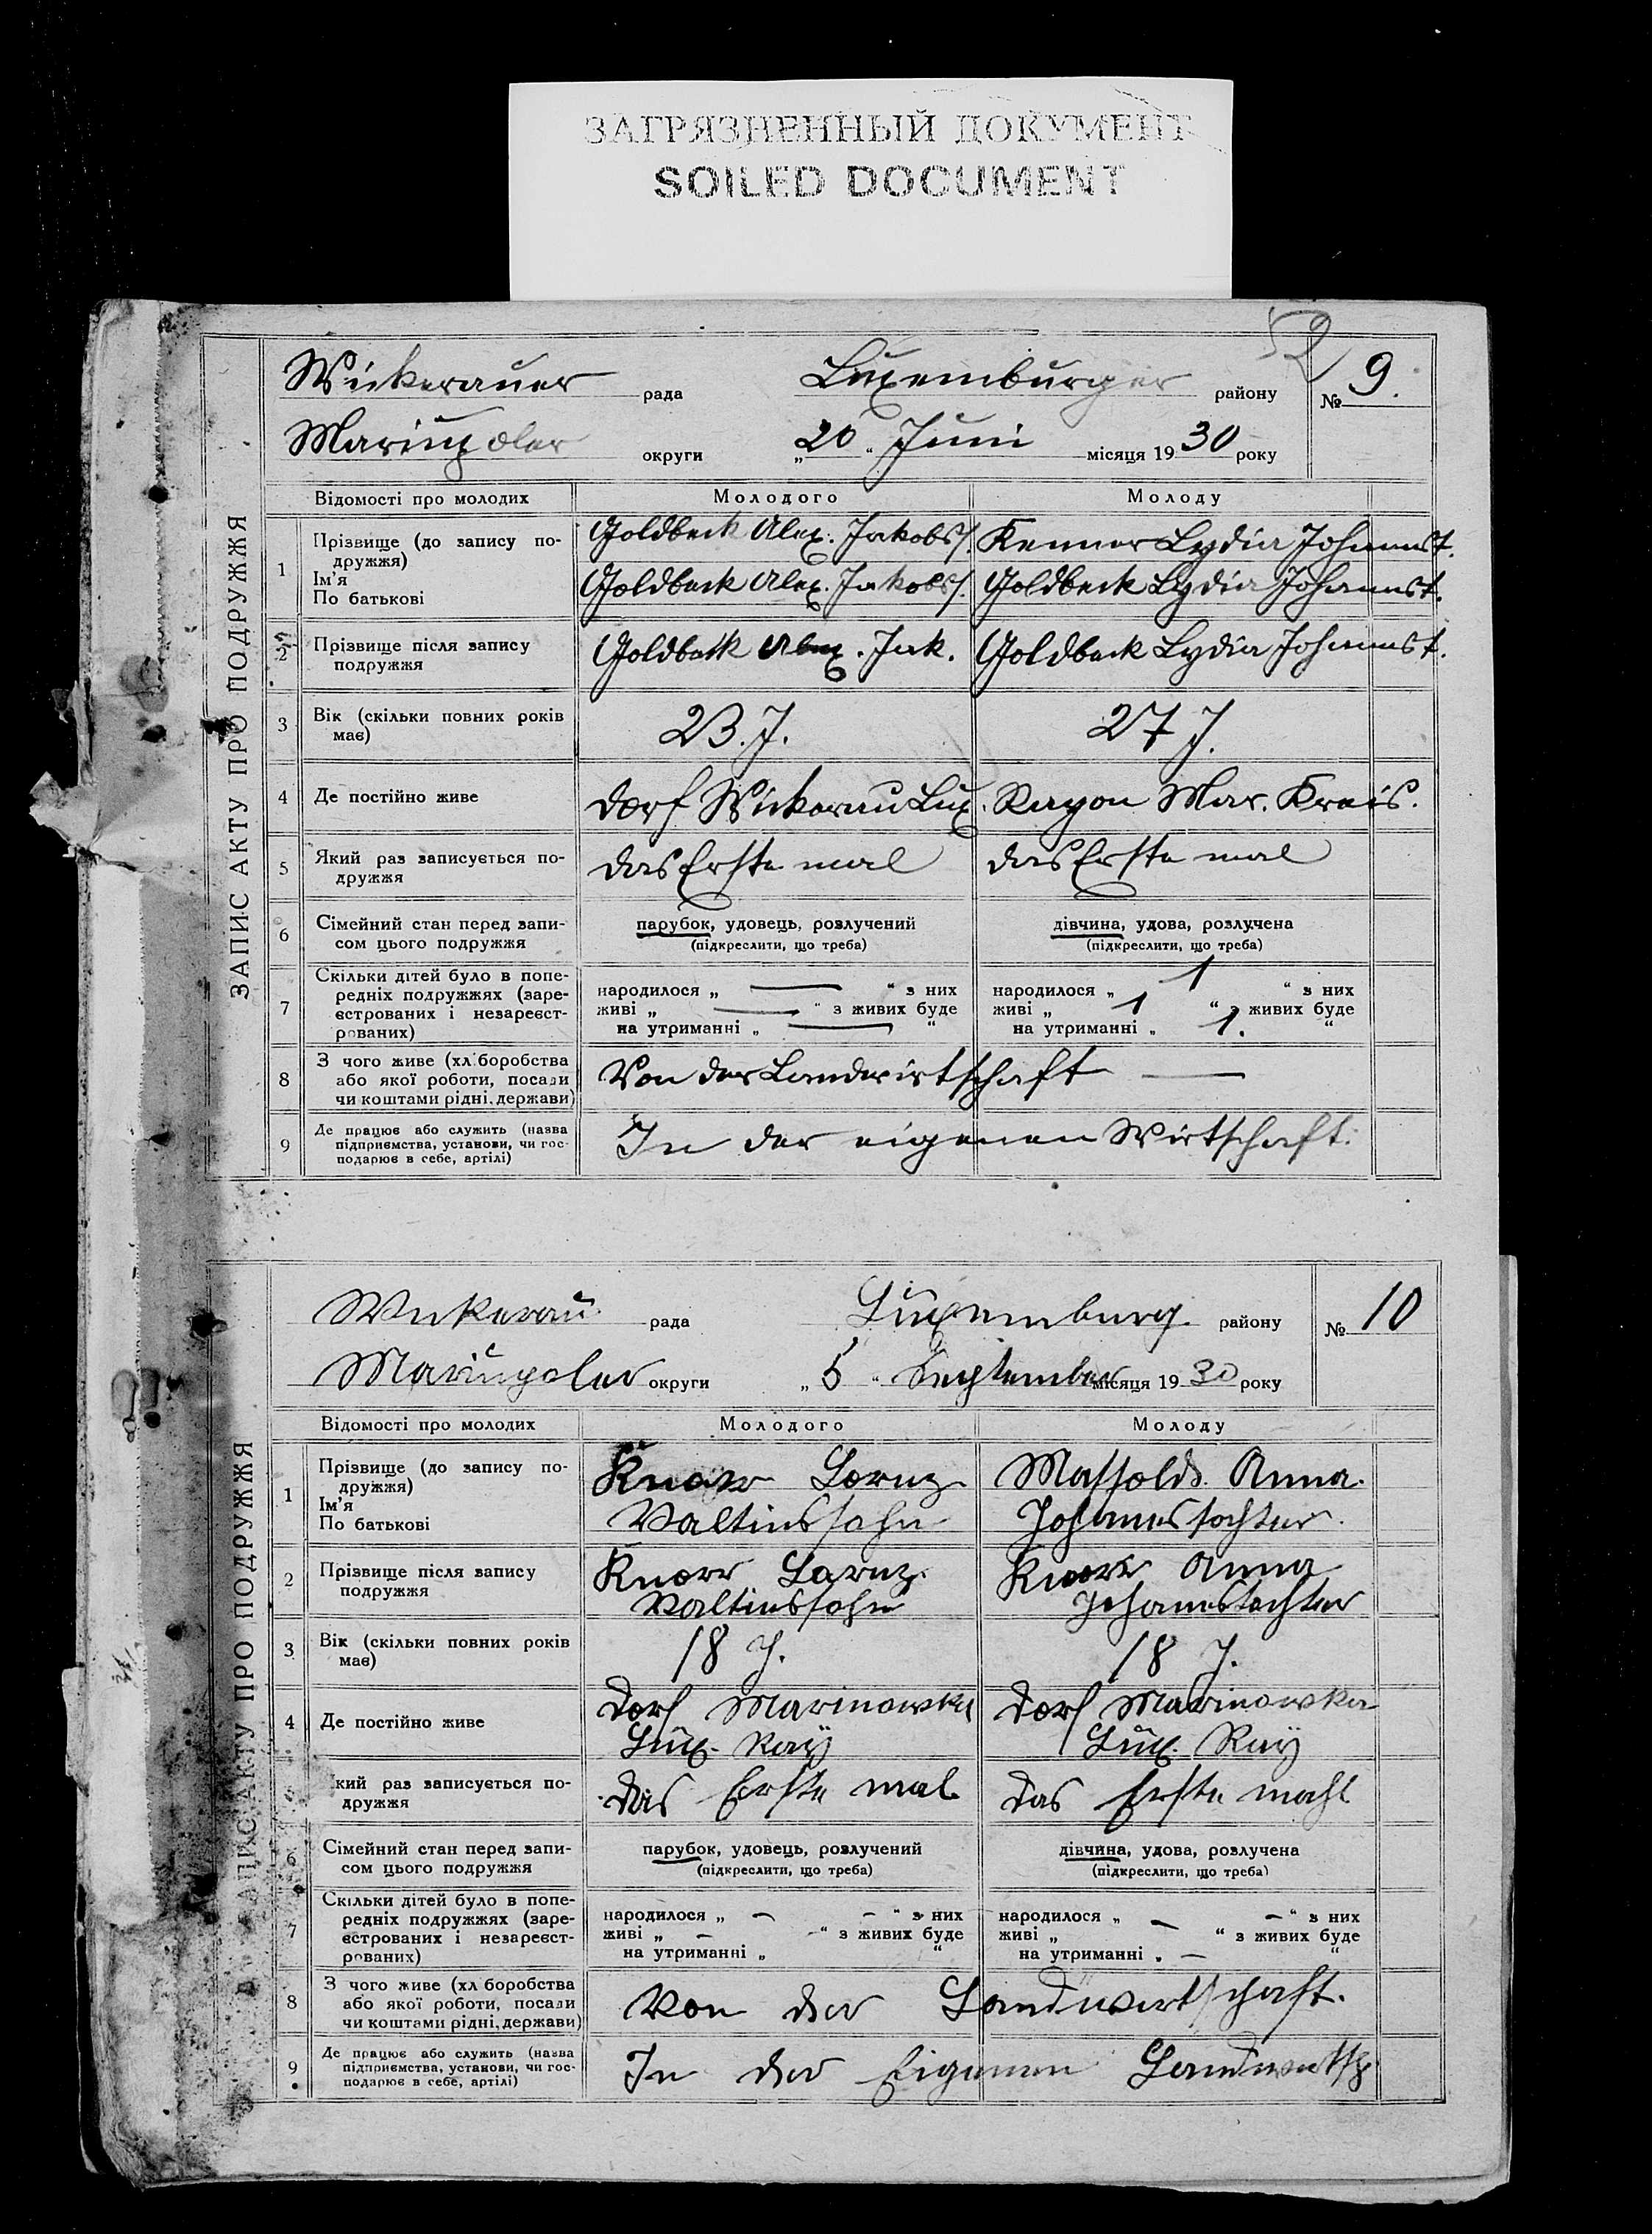 ЗАГРЯЗНЕННЫЙ ДОКУМЕНТ
SOILED DOCUMENT
52
ЗАПИС АКТУ ПРО ПОДРУЖЖЯ
Wickerauer рада Luxemburger району № 9.
Mariupoler округи „20“ Juni місяця 1930 року
Відомості про молодих Молодого Молоду
1 Прізвище (до запису по-
дружжя)
Ім'я
По батькові
Goldbeck Alex. Jakobs/. Kenner Lydia Johannst.
Goldbeck Alex. Jakobs/. Goldbeck Lydia Johannst.
2 Прізвище після запису
подружжя
Goldbeck Alex. Jak. Goldbeck Lydia Johannst.
3 Вік (скільки повних років
має)
23. J. 27 J.
4 Де постійно живе Dorf Wickerau Lux. Rayon Mar. Kreis.
5 Який раз записується по-
дружжя
das Erste mal das Erste mal
6 Сімейний стан перед запи-
сом цього подружжя
парубок, удовець, розлучений дівчина, удова, розлучена
(підкреслити, що треба) (підкреслити, що треба)
7 Скільки дітей було в попе-
редніх подружжях (заре-
єстрованих і незареєст-
рованих)
народилося „ — “ з них народилося „ 1 “ з них
живі „ — “ з живих буде живі „ 1 “ з живих буде
на утриманні „ — “ на утриманні „ 1. “
8 З чого живе (хліборобства
або якої роботи, посади
чи коштами рідні, держави)
Von der Landwirtschaft —
9 Де працює або служить (назва
підприємства, установи, чи гос-
подарює в себе, артілі)
In der eigenen Wirtschaft.
ЗАПИС АКТУ ПРО ПОДРУЖЖЯ
Wickerau рада Luxemburg. району № 10
Mariupoler округи „5“ September місяця 1930 року
Відомості про молодих Молодого Молоду
1 Прізвище (до запису по-
дружжя)
Ім'я
По батькові
Knorr Lornz Massold Anna.
Valtinssohn Johannestochter.
2 Прізвище після запису
подружжя
Knorr Lornz. Knorr Anna
Valtinssohn Johannestochter
3 Вік (скільки повних років
має)
18 J. 18 J.
4 Де постійно живе
Dorf Marinowka Dorf Marinowka
Lux. Ray Lux. Ray
5 Який раз записується по-
дружжя
das Erste mal das Erste mahl
6 Сімейний стан перед запи-
сом цього подружжя
парубок, удовець, розлучений дівчина, удова, розлучена
(підкреслити, що треба) (підкреслити, що треба)
7 Скільки дітей було в попе-
редніх подружжях (заре-
єстрованих і незареєст-
рованих)
народилося „ — — “ з них народилося „ — — “ з них
живі „ — “ з живих буде живі „ “ з живих буде
на утриманні „ “ на утриманні „ — “
8 З чого живе (хліборобства
або якої роботи, посади
чи коштами рідні, держави)
Von der Landwirtschaft.
9 Де працює або служить (назва
підприємства, установи, чи гос-
подарює в себе, артілі)
In der Eigenen